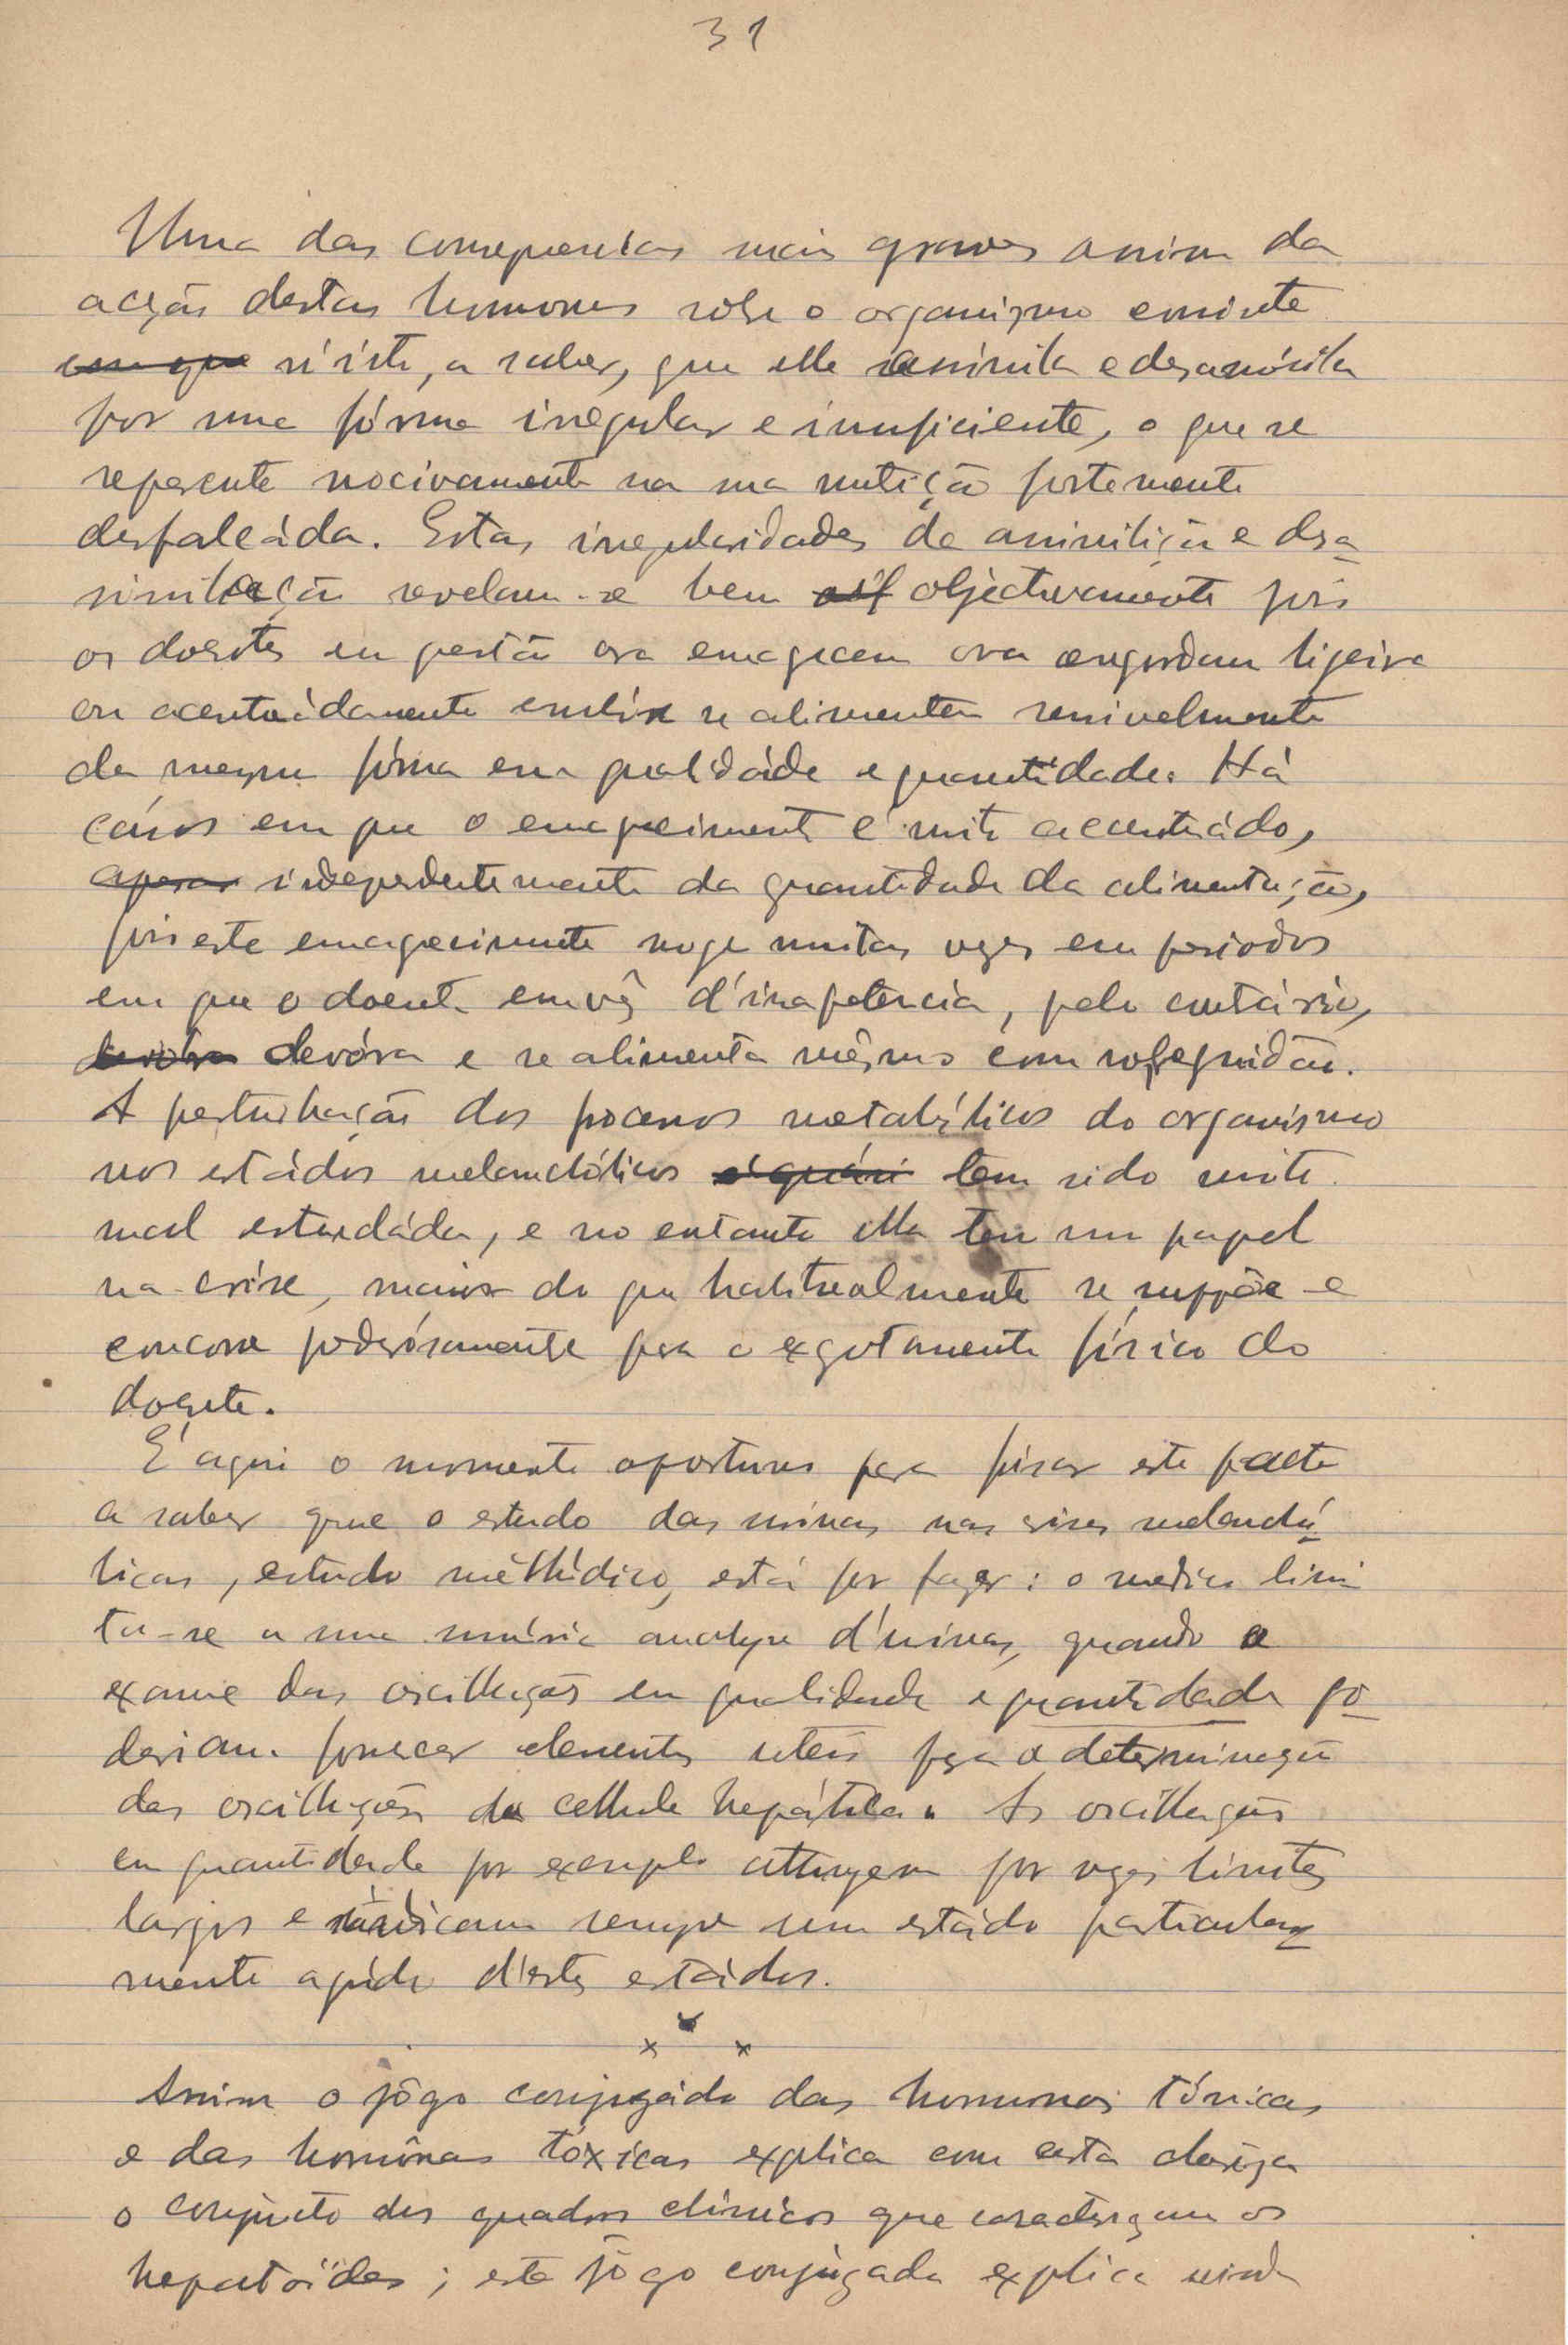 31
Uma das consequencias mais graves assim da
acção destas hormonas sobre o organismo consiste
n'isto, a saber, que elle assimila e desassimila
por uma fórma irregular e insuficiente, o que se
repercute nocivamente na sua nutrição fortemente
desfalcáda. Estas irregularidades de assimilição e desa
similação revelam-se bem objectivamente pois
os doentes em questão ora emagrecem ora engordam ligeira
ou acentuádamente embóra se alimentem sensivelmente
da mesma fórma em qualidáde e quantidade. Há
cásos em que o emagrecimento é muito accentuádo,
independentemente da quantidade da alimentação,
pois este emagrecimento surge muitas vezes em periodos
em que o doente em vês d'inapetencia, pelo contrário,
devóra e se alimenta mêsmo com sofreguidão.
A perturbação dos processos metabólicos do organismo
nos estádos melanchólicos tem sido muito
mal estudáda, e no entanto ella tem um papel
na crise, maior do que habitualmente se suppõe e
concorre poderósamente para o exgotamento físico do
doente.
É aqui o momento oportuno para fixar este facto
a saber que o estudo das urinas nas crises melanchó
licas, estudo méthódico, está por fazer: o medico limi
ta-se a uma analyse d'urinas, quando o
exame das oscillações em qualidade e quantidade po
deriam fornecer elementos uteis para a determinação
das oscillações da cellula hepática. As oscillações
em quantidade por exemplo attingem por vezes limites
largos e indicam sempre um estádo particular
mente agúdo d'estes estádos.
x x x
Assim o jôgo conjugádo das hormonas tónicas
e das hormônas tóxicas explica com certa clareza
o conjuncto dos quadros clínicos que caracterizam os
hepatoïdes; este jôgo conjúgado explica ainda